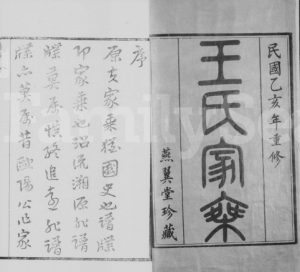 民國乙亥年重修
王氏家乘
燕翼堂珍藏
序
原夫家乘猶國史也譜牒
即家乘也沿流溯源非譜
牒莫屬慎終追遠非譜
牒亦莫屬昔歐陽公作家